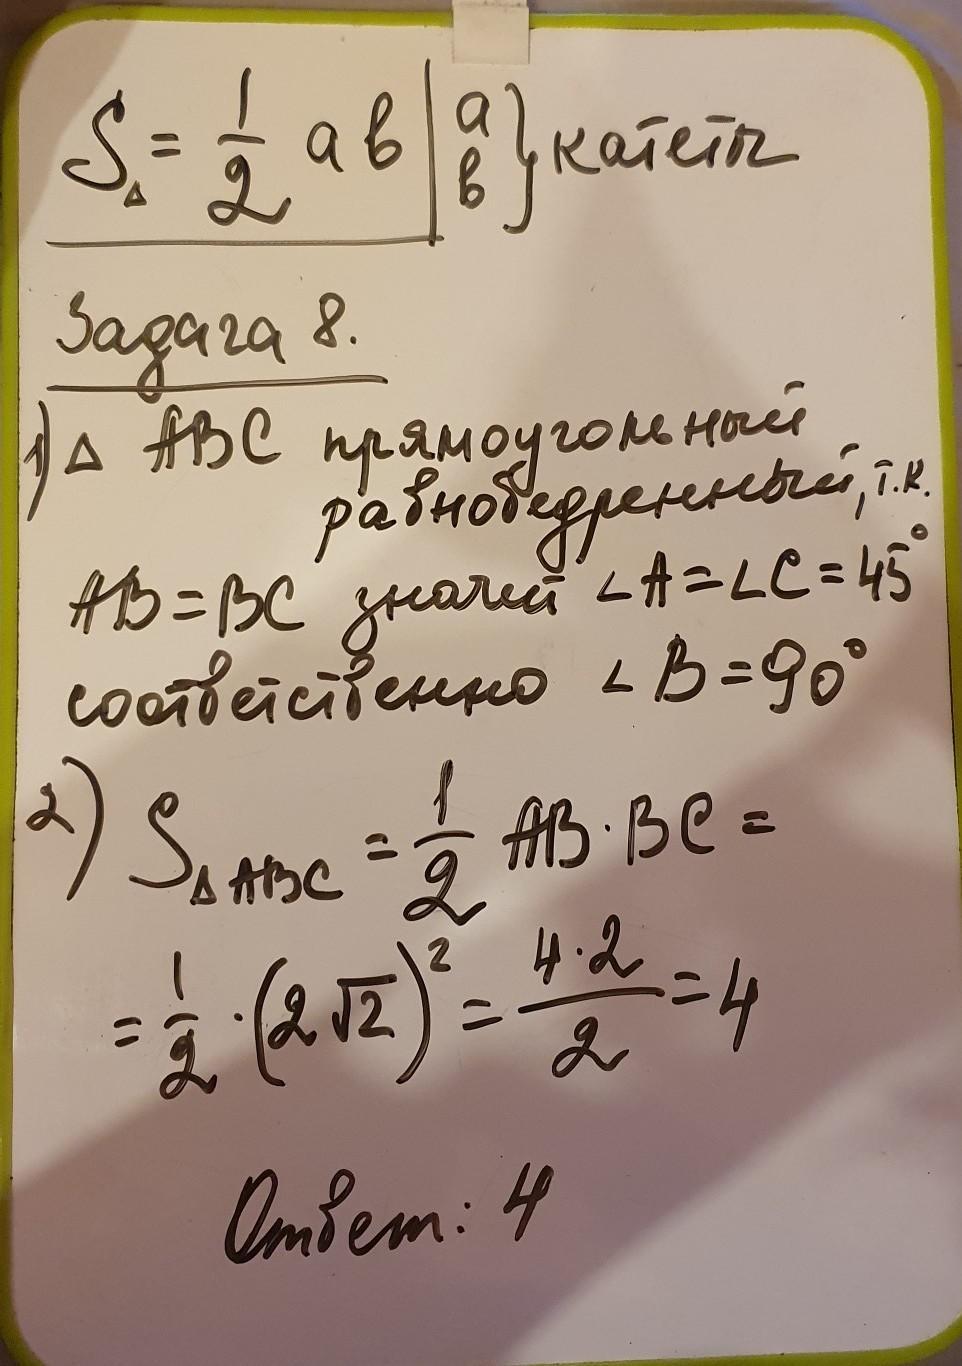 S△ = 1/2 ab | a b } катеты
Задача 8.
1) △ ABC прямоугольный
равнобедренный, т.к.
AB = BC значит ∠A = ∠C = 45°
соответственно ∠B = 90°
2) S△ABC = 1/2 AB · BC =
= 1/2 · (2√2)² = 4·2/2 = 4
Ответ: 4